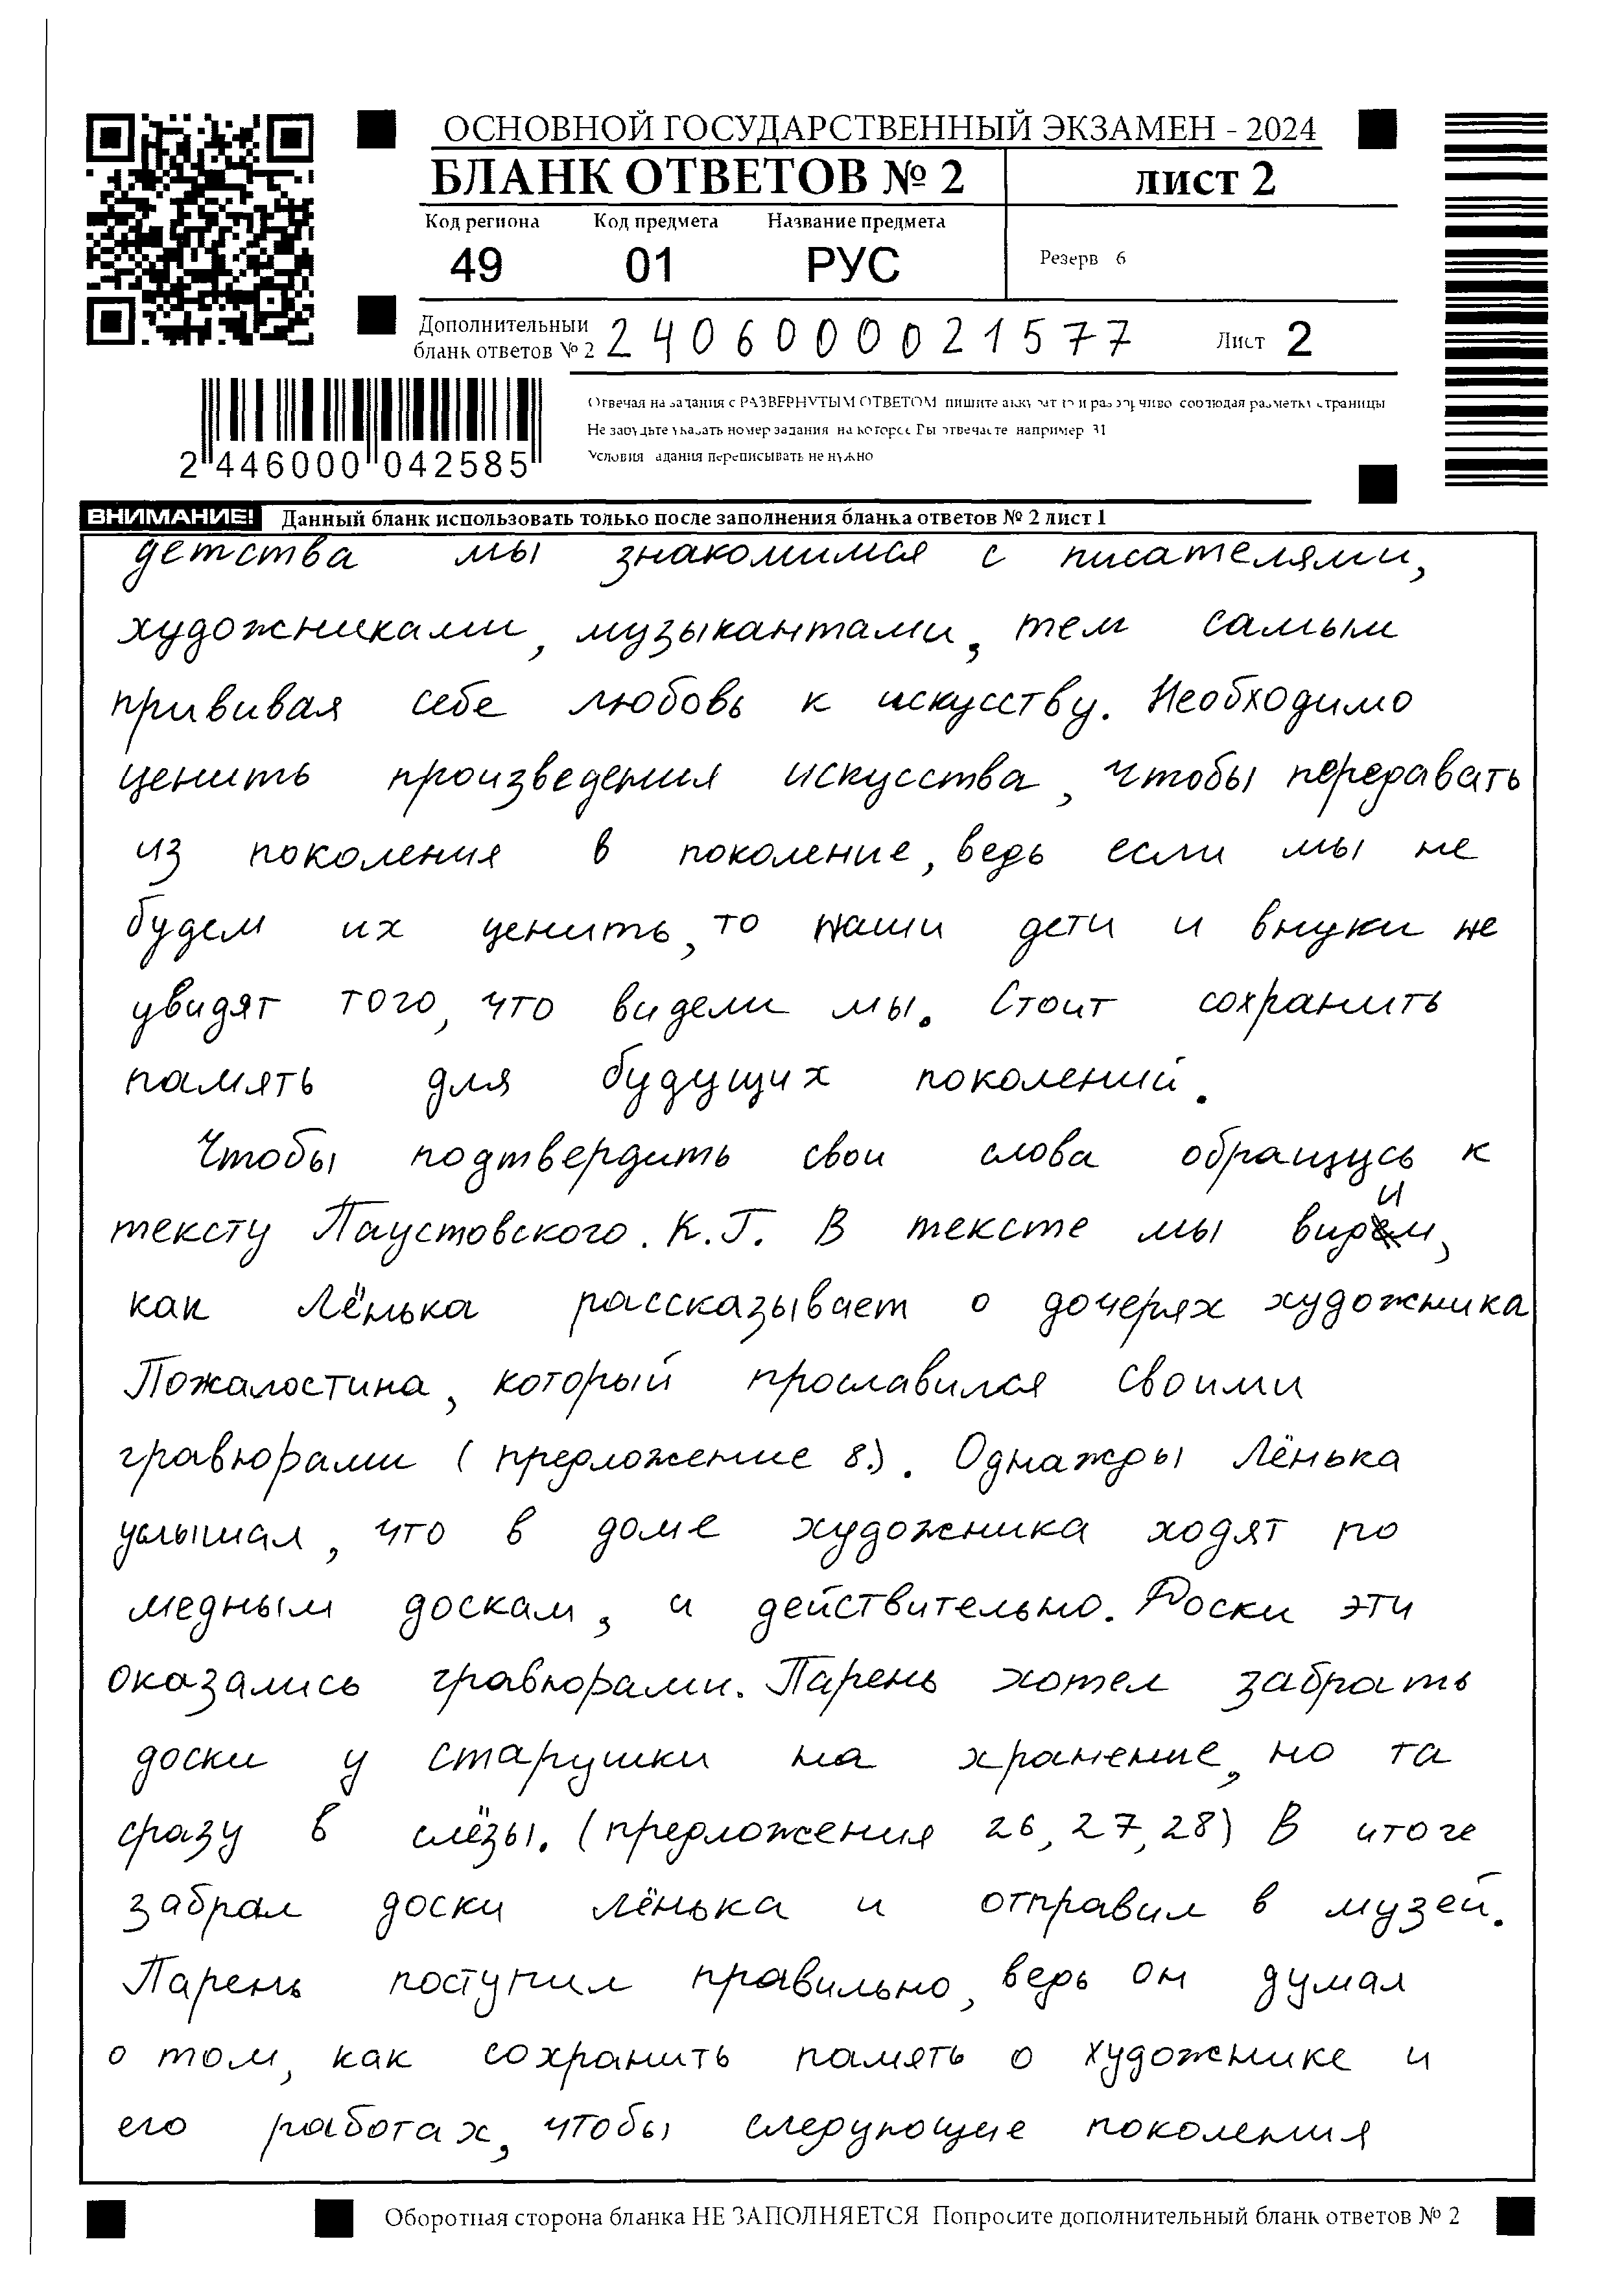 ОСНОВНОЙ ГОСУДАРСТВЕННЫЙ ЭКЗАМЕН - 2024
БЛАНК ОТВЕТОВ № 2 ЛИСТ 2
Код региона Код предмета Название предмета
49 01 РУС Резерв 6
Дополнительный
бланк ответов № 2 2406000021577 Лист 2
Отвечая на задания с РАЗВЕРНУТЫМ ОТВЕТОМ пишите аккуратно и разборчиво соблюдая разметку страницы
Не забудьте указать номер задания на которое Вы отвечаете например 31
Условия задания переписывать не нужно
2 446000 042585
ВНИМАНИЕ! Данный бланк использовать только после заполнения бланка ответов № 2 лист 1
детства мы знакомимся с писателями,
художниками, музыкантами, тем самым
прививая себе любовь к искусству. Необходимо
ценить произведения искусства, чтобы передавать
из поколения в поколение, ведь если мы не
будем их ценить, то наши дети и внуки не
увидят того, что видели мы. Стоит сохранить
память для будущих поколений.
Чтобы подтвердить свои слова обращусь к
тексту Паустовского. К.Г. В тексте мы видим,
как Лёнька рассказывает о дочерях художника
Пожалостина, который прославился своими
гравюрами (предложение 8.). Однажды Лёнька
услышал, что в доме художника ходят по
медным доскам, и действительно. Доски эти
оказались гравюрами. Парень хотел забрать
доски у старушки на хранение, но та
сразу в слёзы. (предложения 26, 27, 28) В итоге
забрал доски Лёнька и отправил в музей.
Парень поступил правильно, ведь он думал
о том, как сохранить память о художнике и
его работах, чтобы следующие поколения
Оборотная сторона бланка НЕ ЗАПОЛНЯЕТСЯ Попросите дополнительный бланк ответов № 2